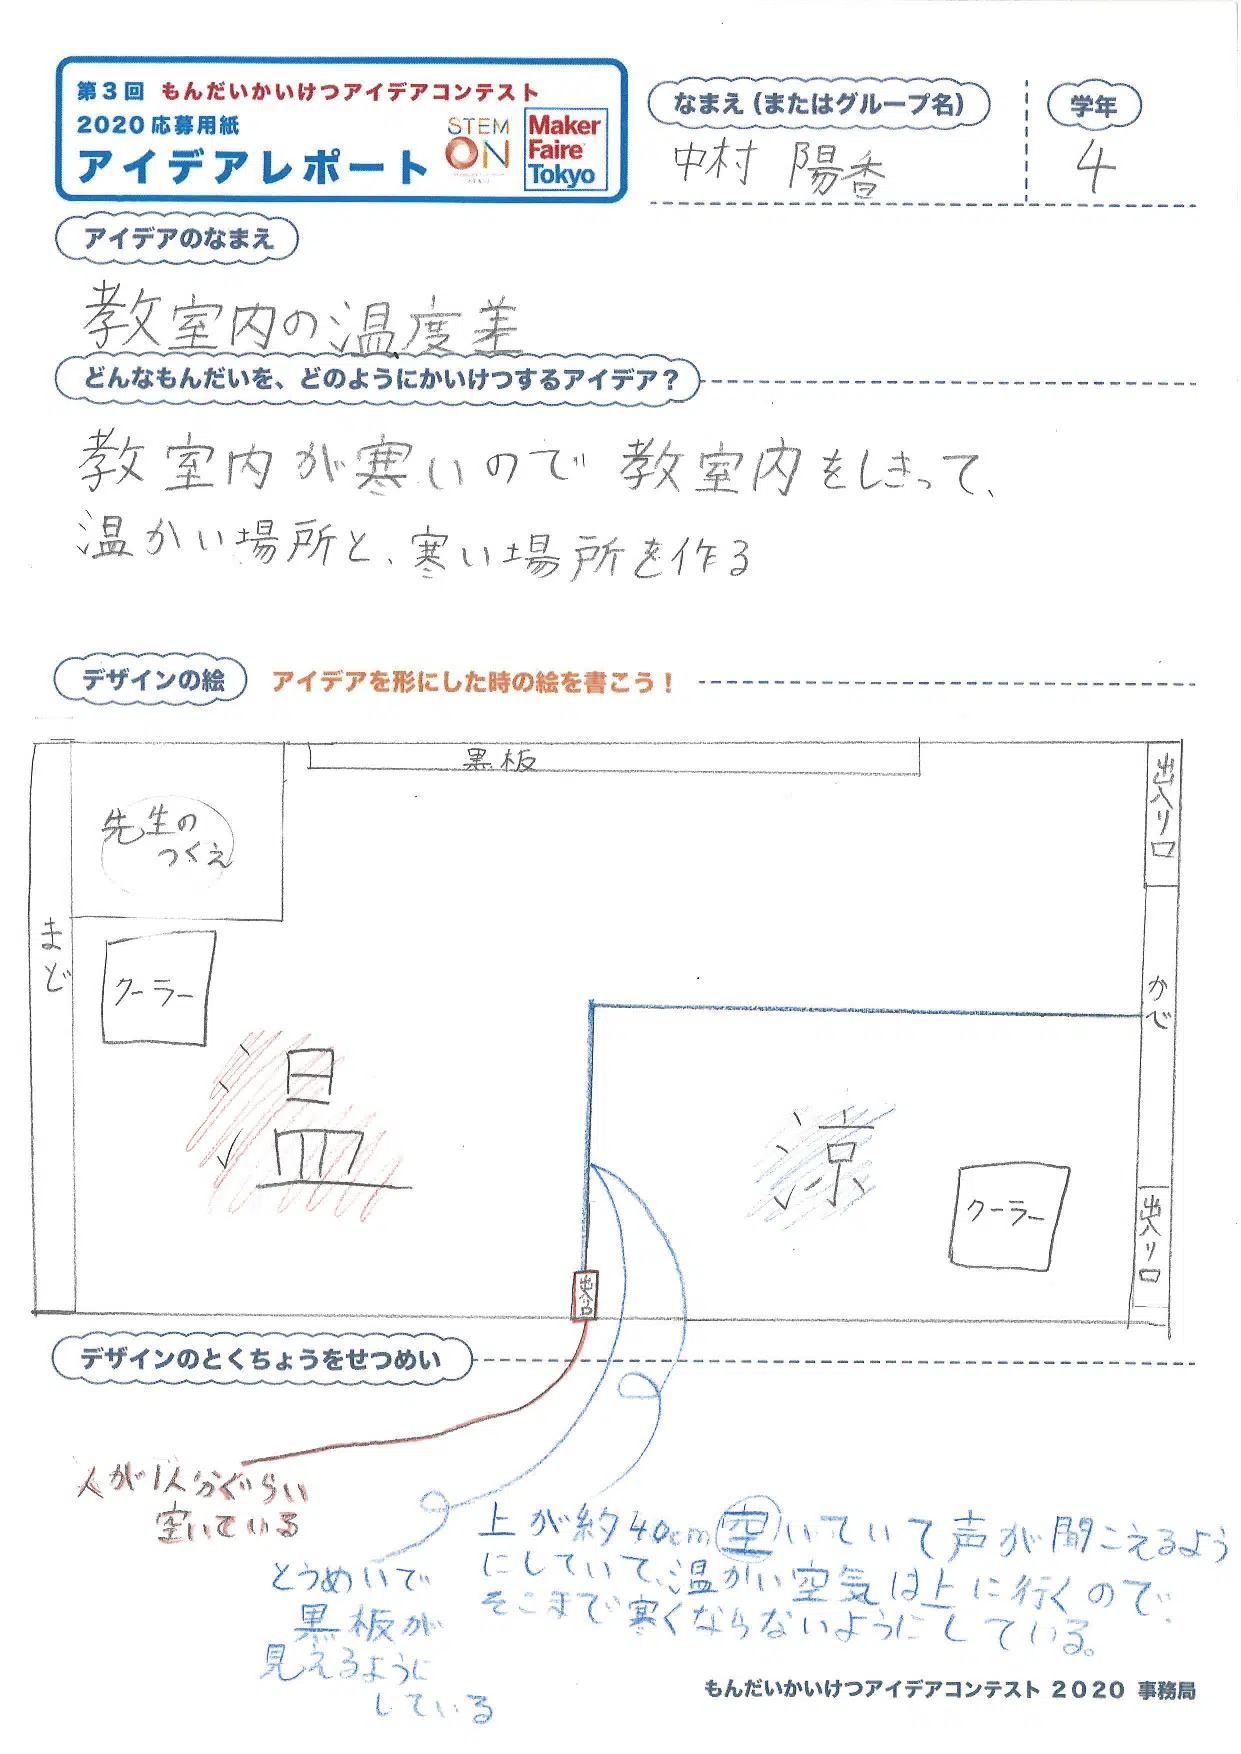 第3回 もんだいかいけつアイデアコンテスト
2020応募用紙
アイデアレポート
STEM
ON
Maker
Faire
Tokyo
なまえ(またはグループ名)
学年
中村 陽香
4
アイデアのなまえ
教室内の温度差
どんなもんだいを、どのようにかいけつするアイデア?
教室内が寒いので教室内をしきって、
温かい場所と、寒い場所を作る
デザインの絵
アイデアを形にした時の絵を書こう!
黒板
出入り口
先生の
つくえ
まど
クーラー
かべ
温
涼
クーラー
出入り口
出入口
デザインのとくちょうをせつめい
人が1人分ぐらい
空いている
とうめいで
黒板が
見えるように
している
上が約40cm空いていて声が聞こえるよう
にしていて、温かい空気は上に行くので、
そこまで寒くならないようにしている。
もんだいかいけつアイデアコンテスト 2020 事務局